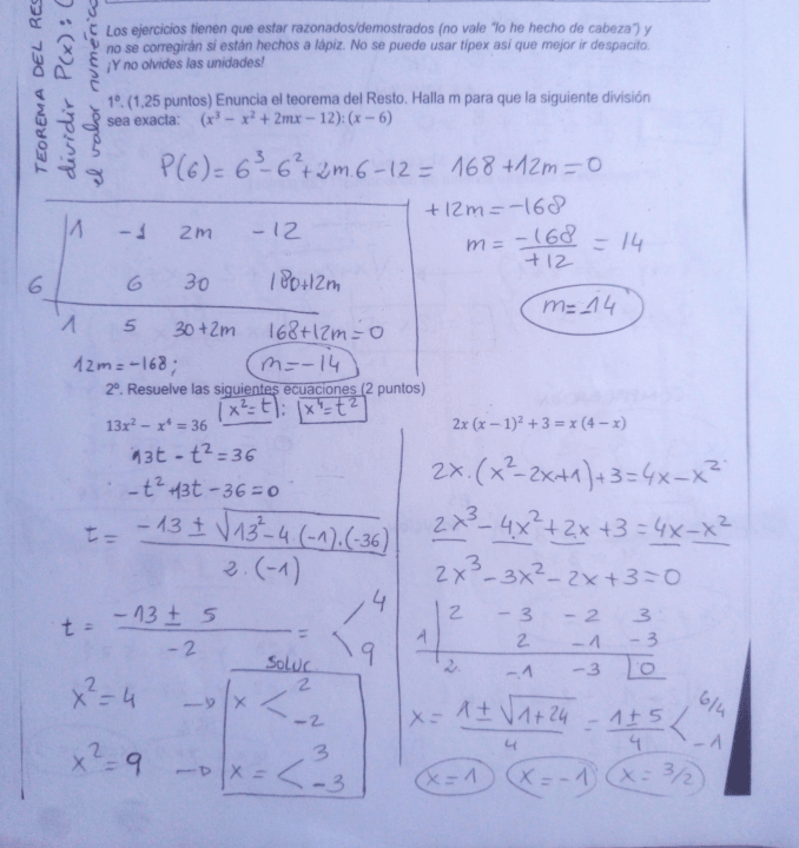 TEOREMA DEL RES
dividir P(x) : (
el valor numéric
Los ejercicios tienen que estar razonados/demostrados (no vale "lo he hecho de cabeza") y
no se corregirán si están hechos a lápiz. No se puede usar tipex así que mejor ir despacito.
¡Y no olvides las unidades!
1º. (1,25 puntos) Enuncia el teorema del Resto. Halla m para que la siguiente división
sea exacta: (x³ − x² + 2mx − 12):(x − 6)
P(6) = 6³ − 6² + 2m.6 − 12 = 168 + 12m = 0
+12m = −168
m = −168/+12 = 14
m = 14
1 −1 2m −12
6 6 30 180+12m
1 5 30+2m 168+12m = 0
12m = −168; m = −14
2º. Resuelve las siguientes ecuaciones (2 puntos)
13x² − x⁴ = 36 x² = t ; x⁴ = t²
13t − t² = 36
−t² + 13t − 36 = 0
t = −13 ± √13² − 4.(−1).(−36) / 2.(−1)
t = −13 ± 5 / −2 = < 4 9
SOLUC
x² = 4 → x < 2 −2
x² = 9 → x = < 3 −3
2x (x − 1)² + 3 = x (4 − x)
2x.(x² − 2x + 1) + 3 = 4x − x²
2x³ − 4x² + 2x + 3 = 4x − x²
2x³ − 3x² − 2x + 3 = 0
2 −3 −2 3
1 2 −1 −3
2 −1 −3 0
x = 1 ± √1 + 24 / 4 = 1 ± 5 / 4 < 6/4 −1
x = 1 x = −1 x = 3/2